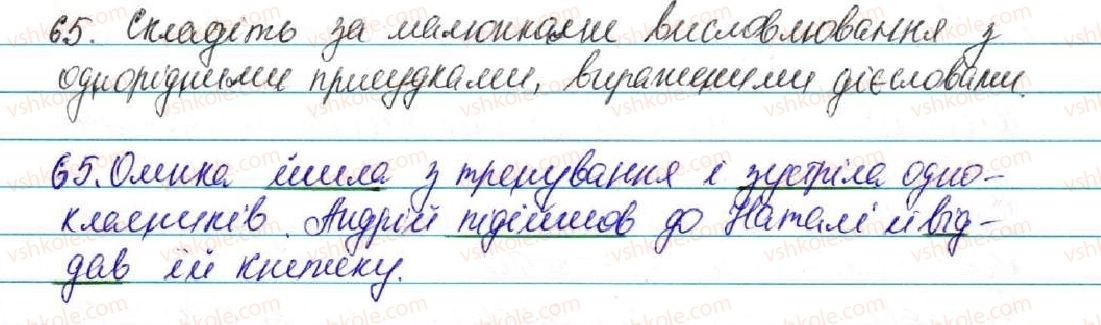 65. Складіть за малюнками висловлювання з
однорідними присудками, вираженими дієсловами.
65. Оленка йшла з тренування і зустріла одно-
класників. Андрій підійшов до Наталі й від-
дав їй книжку.